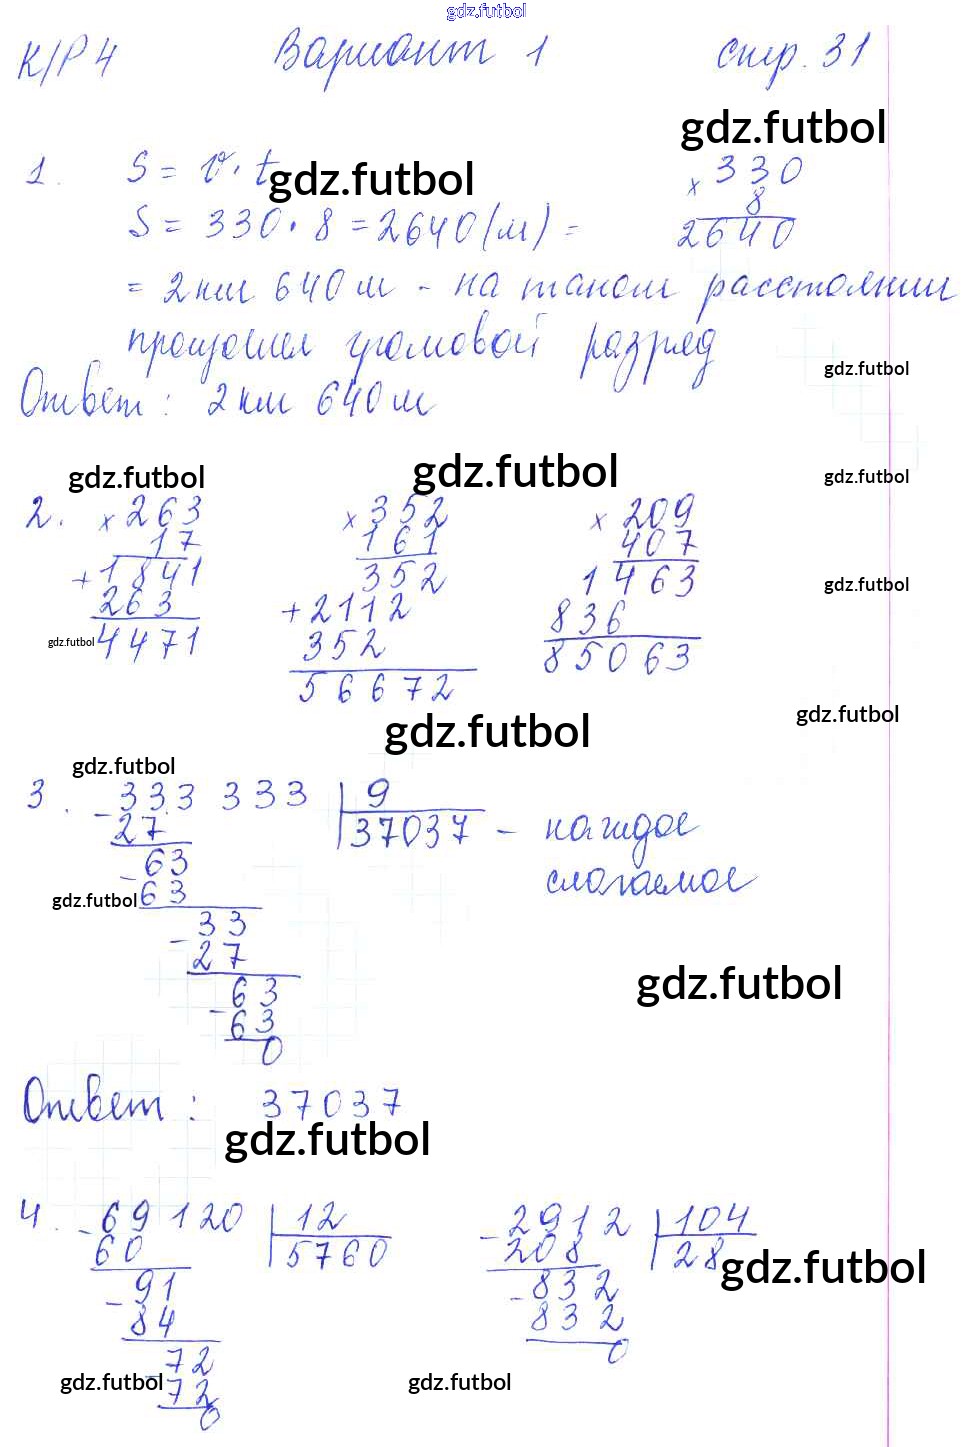 gdz.futbol
К/Р 4 Вариант 1 стр. 31
gdz.futbol
1. S = v · t
gdz.futbol
× 330
8
2640
S = 330 · 8 = 2640 (м) =
= 2 км 640 м - на таком расстоянии
произошел громовой разряд
gdz.futbol
Ответ: 2 км 640 м
gdz.futbol gdz.futbol gdz.futbol
2. × 263 × 352 × 209
17 161 407
+ 1841 352 1463
263 + 2112 836
4471 352 85063
56672
gdz.futbol
gdz.futbol
gdz.futbol
gdz.futbol
gdz.futbol
3. - 333 333 | 9
27 37037 - каждое
- 63 слагаемое
63
gdz.futbol
- 33
27
- 63
63
0
gdz.futbol
Ответ: 37037
gdz.futbol
4. - 69120 | 12 - 2912 | 104
60 5760 208 28
gdz.futbol
- 91 - 832
84 832
- 72 0
72
0
gdz.futbol gdz.futbol